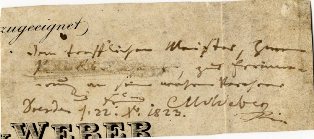 zugeeignet,
dem trefflichen Meister, Herrn
zur Erinne-
rung an seinen wahren Verehrer
Dresden d. 22. 1823. CMvWeber
WEBER